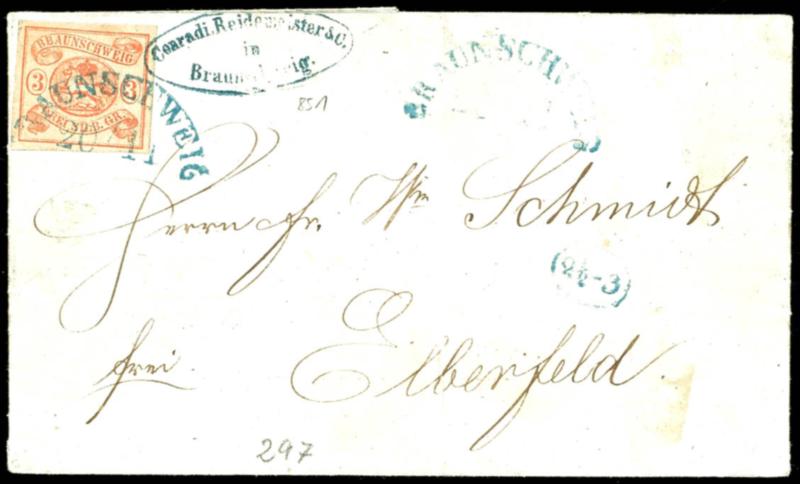 BRAUNSCHWEIG
3 3
BRAUNSCHWEIG
20 11
Conradi, Reidemeister & C.
in
Braunschweig.
851
BRAUNSCHWEIG
Herrn Fr. Wm Schmidt
(2½-3)
Elberfeld.
frei
297